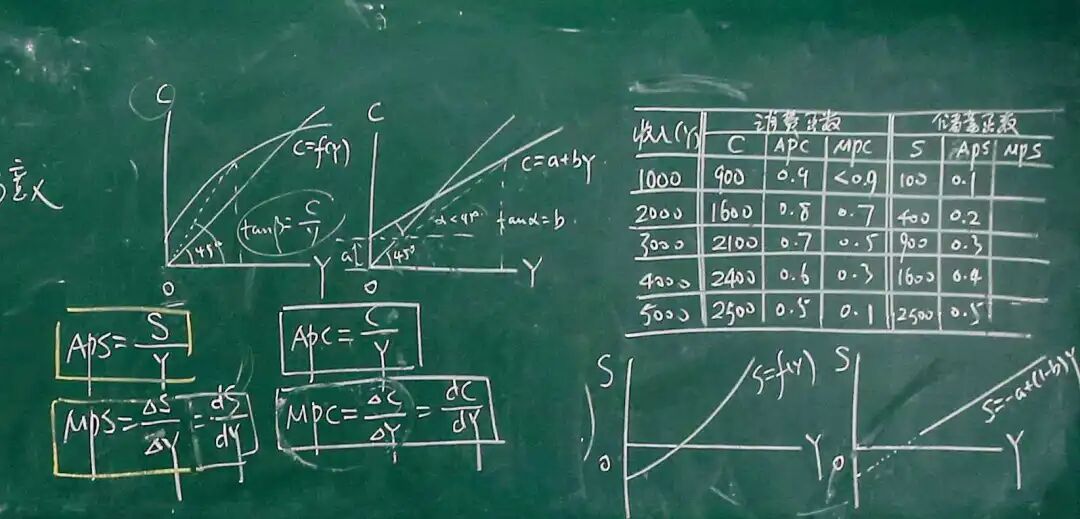 意义
C
C=f(Y)
tanβ=C/Y
45°
O
Y
C
C=a+bY
α<45°
tanα=b
a
45°
O
Y
APS=S/Y
APC=C/Y
MPS=ΔS/ΔY=dS/dY
MPC=ΔC/ΔY=dC/dY
收入(Y) 消费函数 储蓄函数
C APC MPC S APS MPS
1000 900 0.9 <0.9 100 0.1
2000 1600 0.8 0.7 400 0.2
3000 2100 0.7 0.5 900 0.3
4000 2400 0.6 0.3 1600 0.4
5000 2500 0.5 0.1 2500 0.5
S
S=f(Y)
O
Y
S
S=-a+(1-b)Y
O
Y